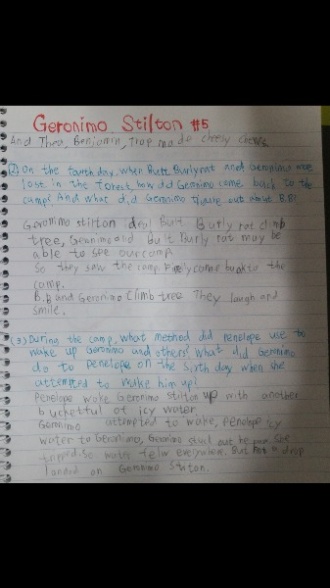 Geronimo Stilton #5
And Thea, Benjamin, trap made cheesy
(2) On the fourth day, when Butt Burlyrat and Geronimo were
lost in the forest, how did Geronimo come back to the
camp? And what did Geronimo out about B.B?
Geronimo stilton and Butt Burly rat climb
tree, Geronimo and Butt Burly rat may be
able to see our camp.
So they saw the camp. come back to the
camp.
B.B and Geronimo climb tree They laugh and
smile.
(3) During the camp, what method did Penelope use to
wake up Geronimo and others? what did Geronimo
do to penelope on the sixth day when she
attempted to make him up?
Penelope woke Geronimo Stilton up with another
bucketful of icy water
Geronimo attempted to wake, penelope icy
water to Geronimo, Geronimo out She
water everywhere. But not a drop
landed on Geronimo Stilton.